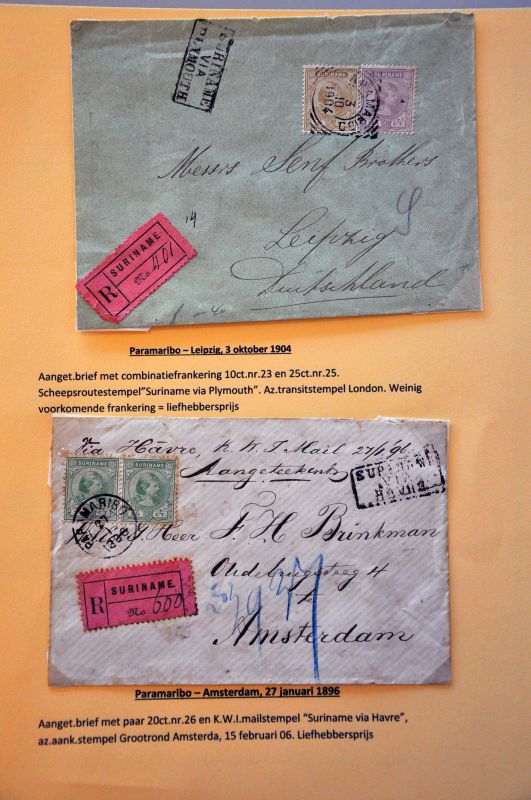 SURINAME
VIA
PLYMOUTH
SURINAME
SURINAME
3
10
1904
Messrs Senf Brothers
14
Leipzig
Duitschland
SURINAME.
R
No 401
Paramaribo – Leipzig, 3 oktober 1904
Aanget.brief met combinatiefrankering 10ct.nr.23 en 25ct.nr.25.
Scheepsroutestempel"Suriname via Plymouth". Az.transitstempel London. Weinig
voorkomende frankering = liefhebbersprijs
Via Hâvre, K. W. I Mail 27/1/96
Aangeteekend
SURINAME
VIA
PARAMARIBO
Heer F. H. Brinkman
Oudebrugsteeg 4
te
Amsterdam
SURINAME.
R
No 600
Paramaribo – Amsterdam, 27 januari 1896
Aanget.brief met paar 20ct.nr.26 en K.W.I.mailstempel "Suriname via Havre",
az.aank.stempel Grootrond Amsterda, 15 februari 06. Liefhebbersprijs